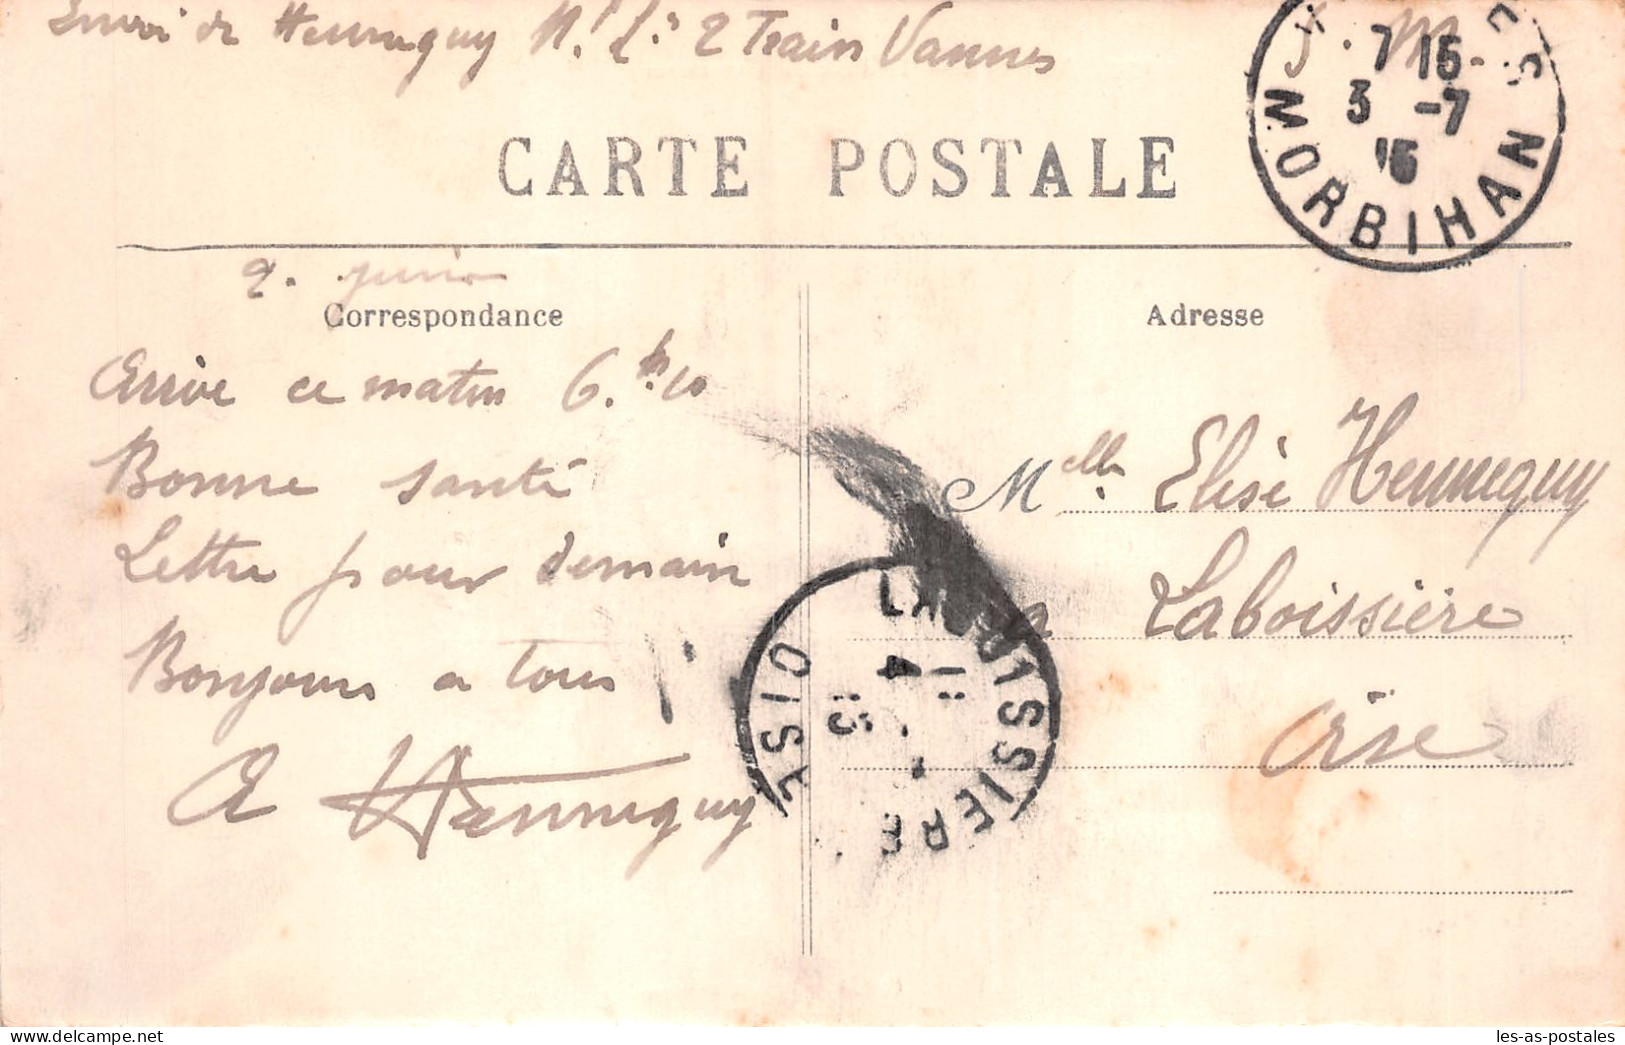 Envoi de Hennequy M. L. 2 Train Vannes
F. M.
7 15
3 -7
15
MORBIHAN
CARTE POSTALE
2. juin
Correspondance
Adresse
Arrive ce matin 6.h 10
Bonne santé
Lettre pour demain
Bonjour a tous
A Hennequy
Melle Elise Hennequy
a Laboissière
Oise
LABOISSIERE
OISE
4
15
les-as-postales